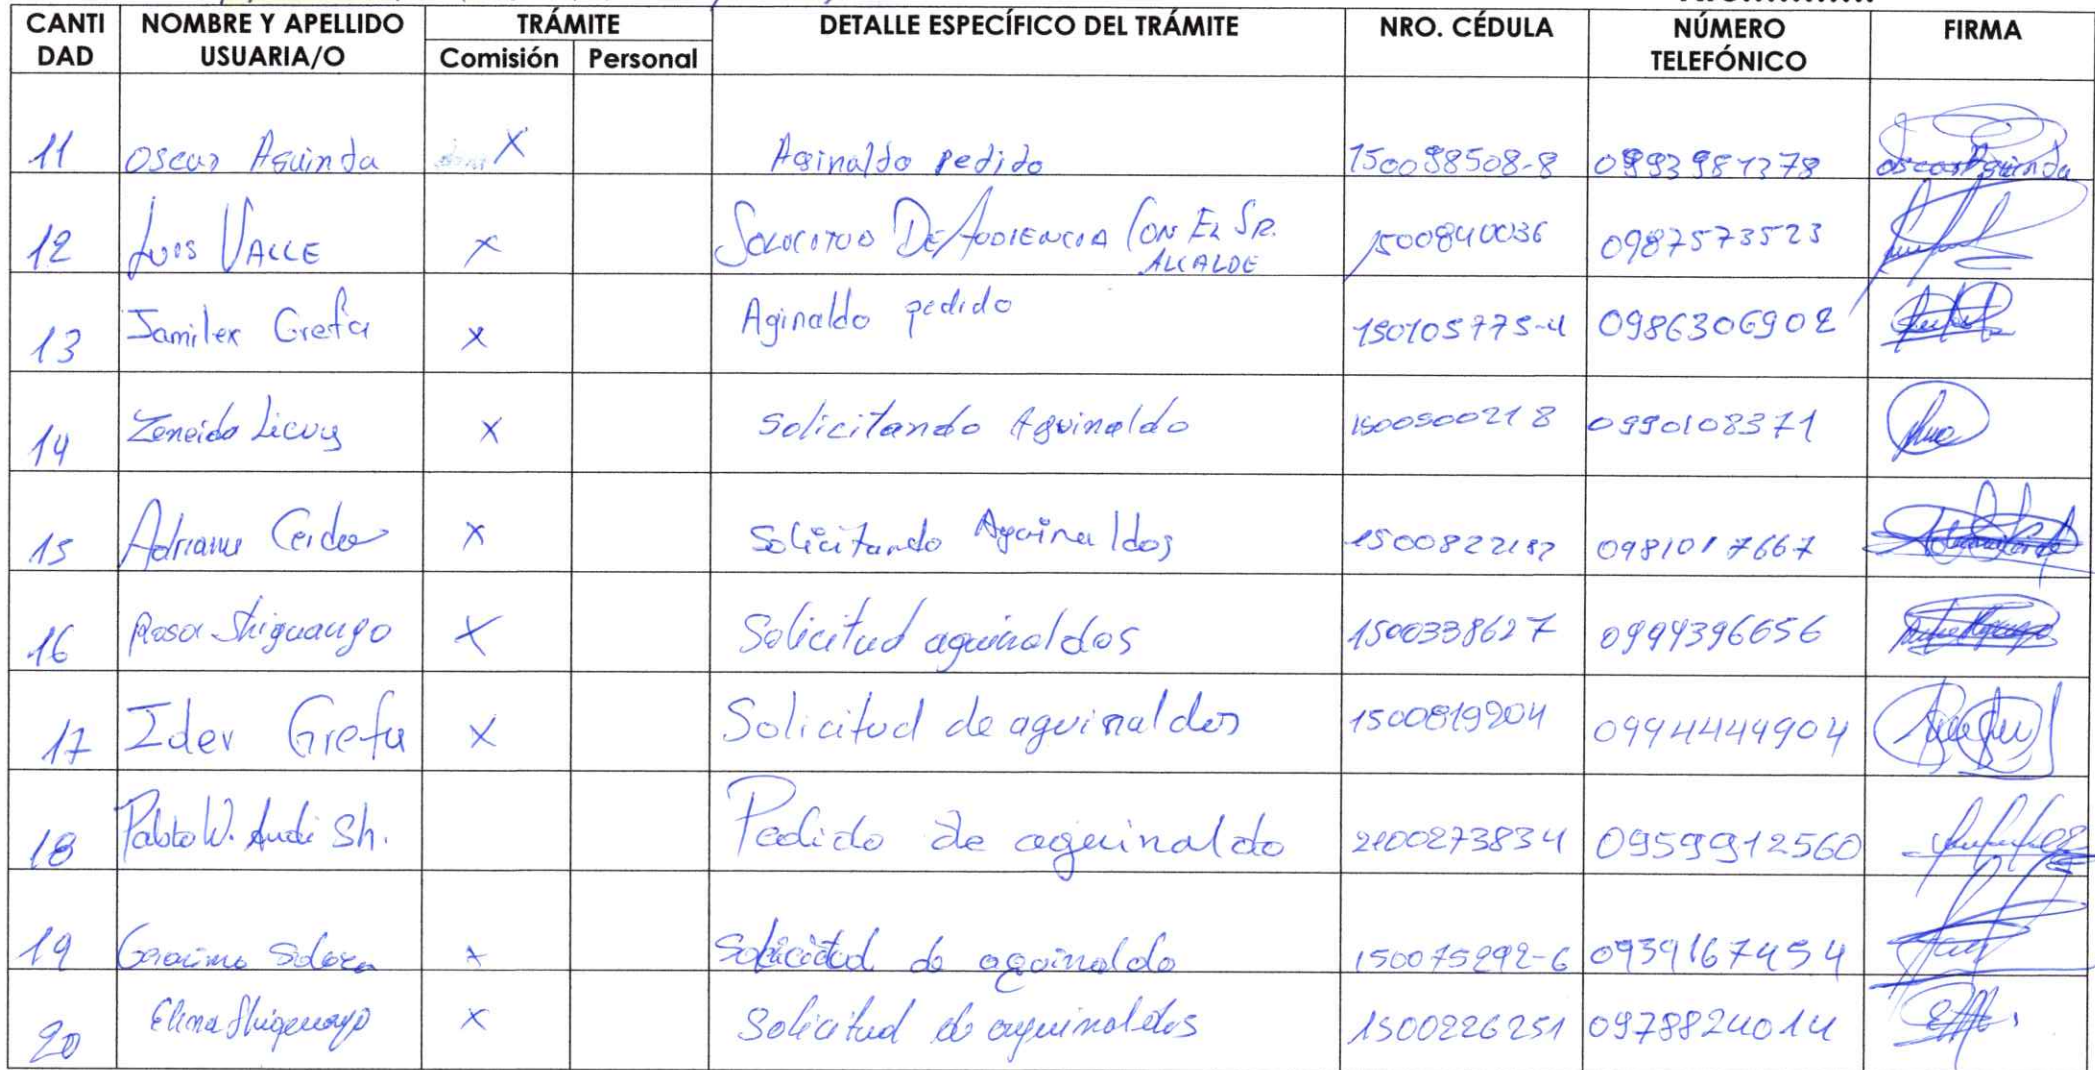 CANTI DAD | NOMBRE Y APELLIDO USUARIA/O | TRÁMITE Comisión Personal | DETALLE ESPECÍFICO DEL TRÁMITE | NRO. CÉDULA | NÚMERO TELEFÓNICO | FIRMA
11 Oscar Aguinda X Aginaldo pedido 150098508-8 0993981278 Oscar Aguinda
12 Luis VALLE X SOLICITUD DE AUDIENCIA CON EL SR. ALCALDE 1500840036 0987573523
13 Jamilex Grefa X Aginaldo pedido 150105775-4 0986306902
14 Zeneida Licuy X Solicitando Aguinaldo 1500500218 0990108371
15 Adriana Cerda X Solicitando Aguinaldos 1500822182 0981017667
16 Rosa Shiguango X Solicitud aguinaldos 1500338627 0994396656
17 Ider Grefa X Solicitud de aguinaldos 1500819204 0994444904
18 Pablo W. Andi Sh. Pedido de aguinaldo 2100273834 0959912560
19 X Solicitud de aguinaldo 150075292-6 0939167454
20 Elina Shiguango X Solicitud de aguinaldos 1500226251 0978824014